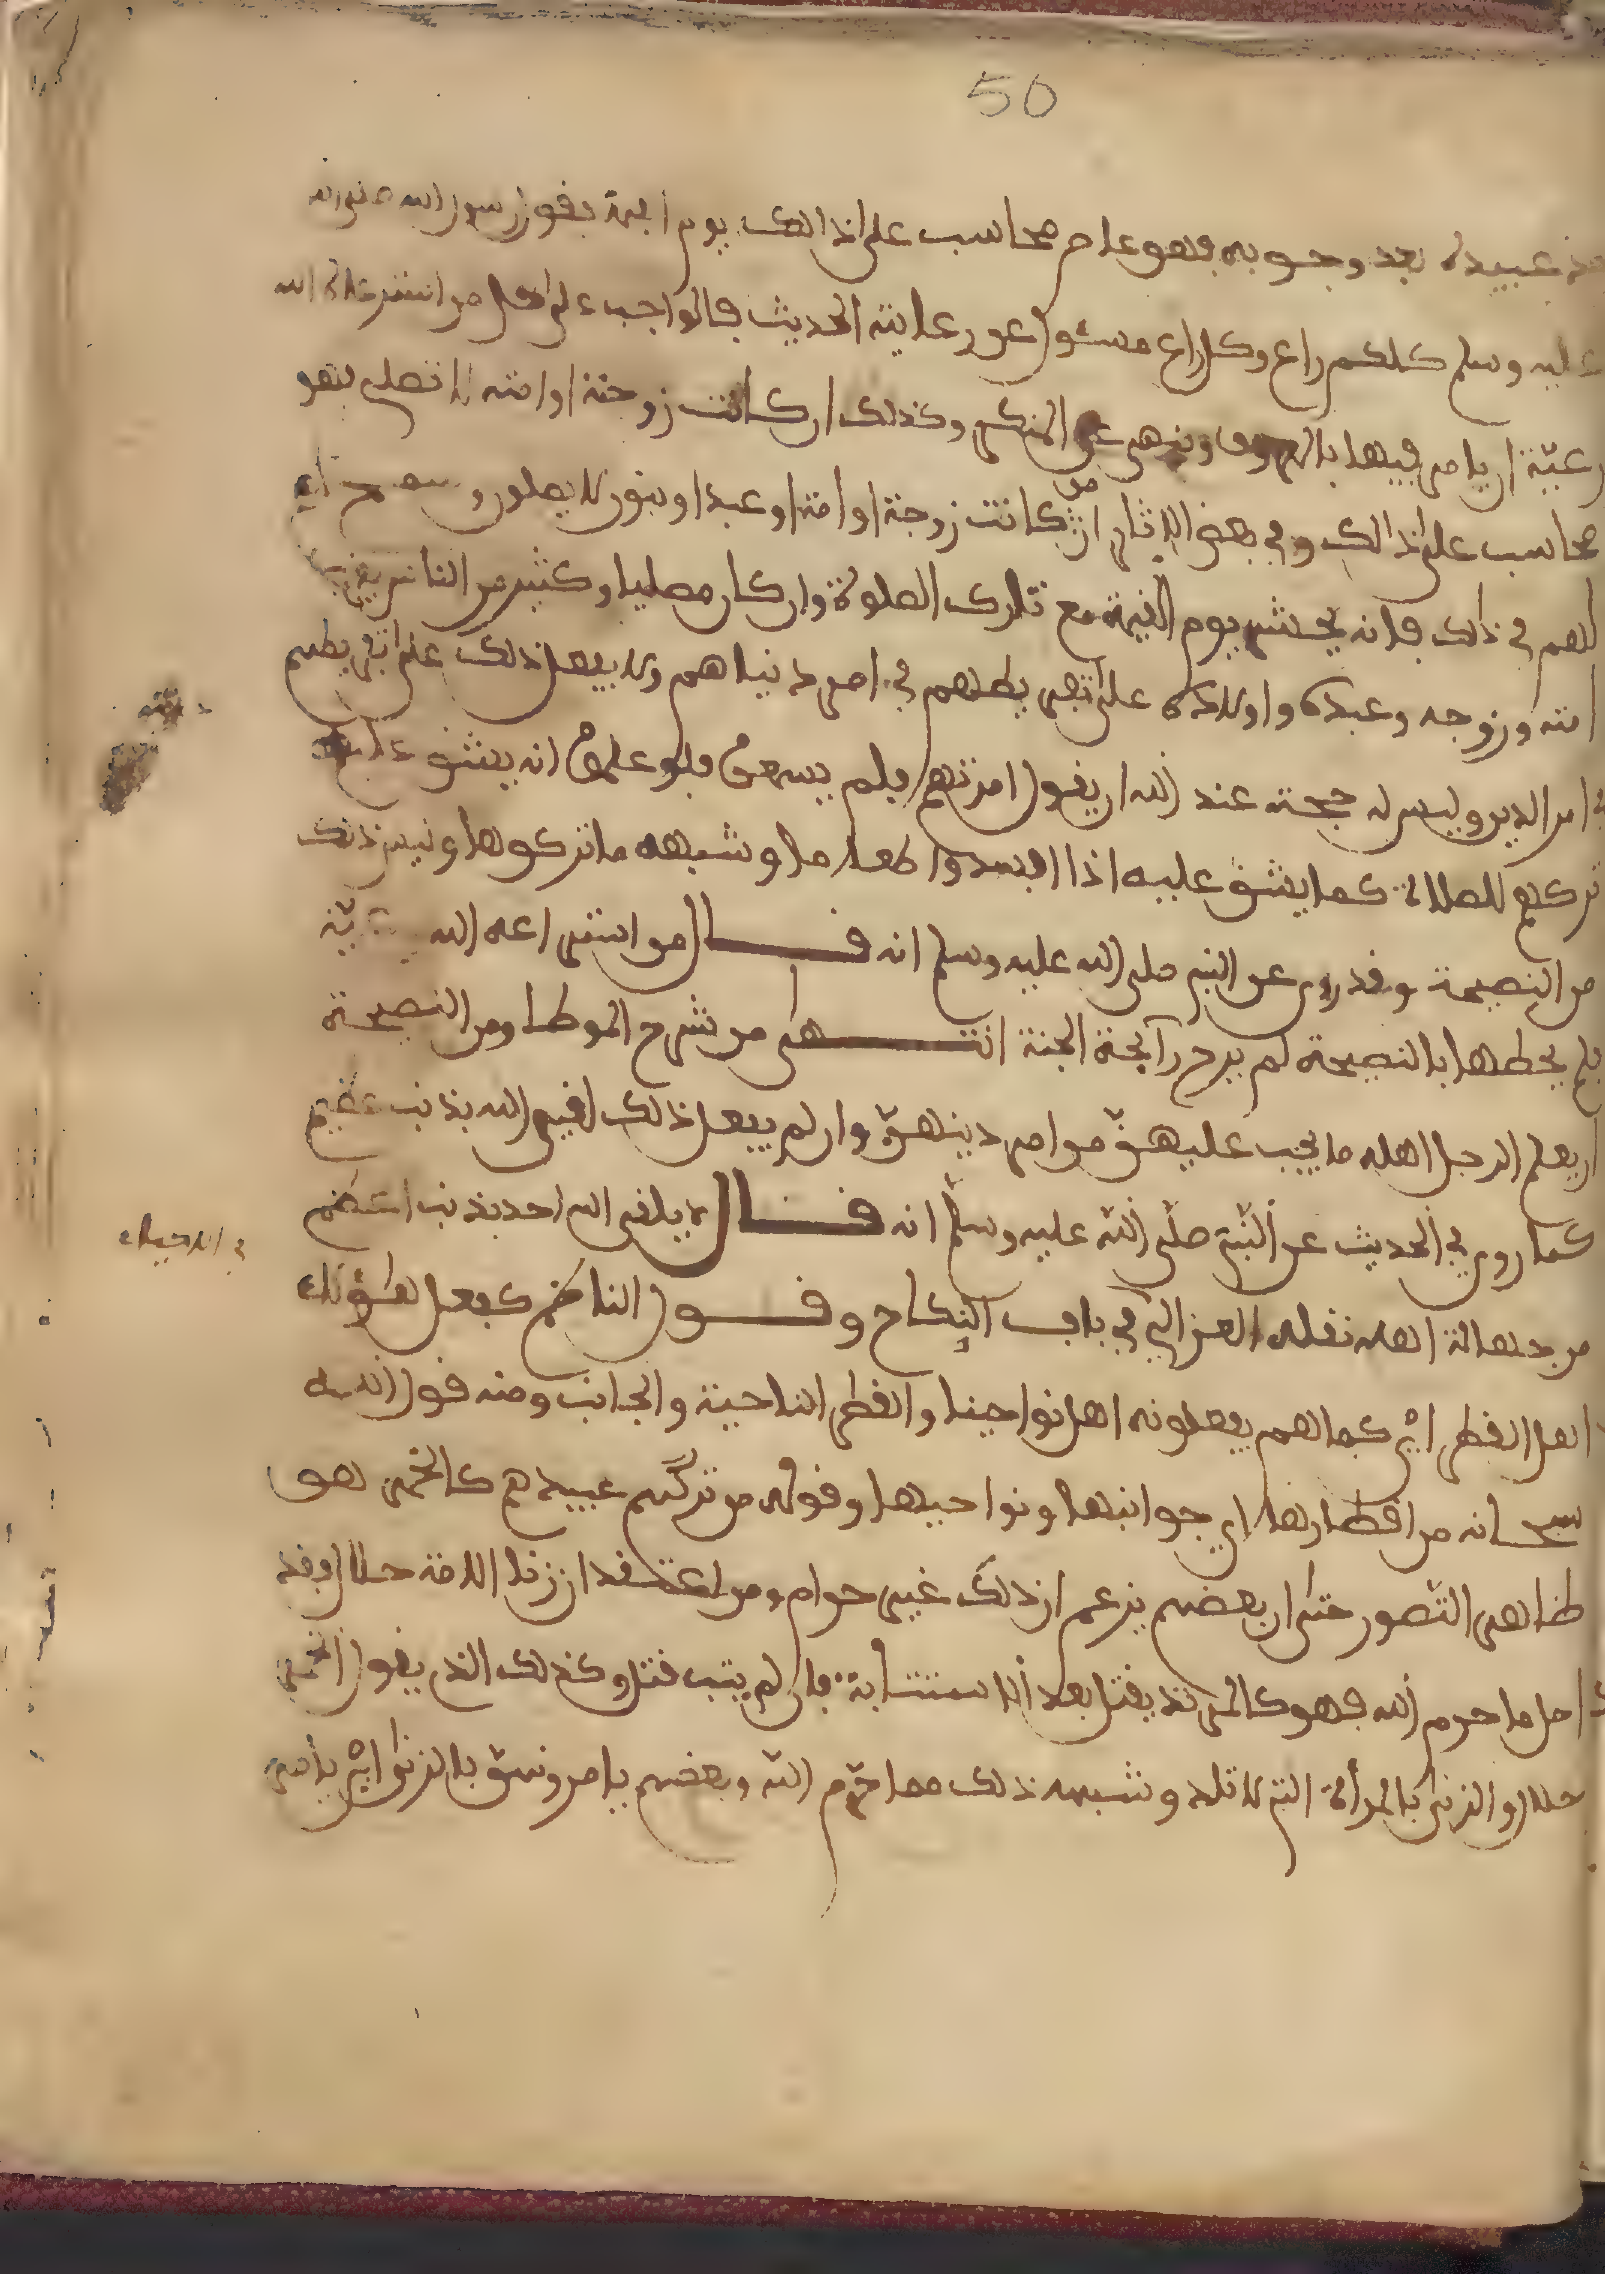 50
عبيده بعد وجوبه فهو عاص محاسب على اذالك يوم القيمة بقول رسول الله صلى الله
عليه وسلم كلكم راع وكل راع مسئول عن رعايته الحديث فالواجب على كل من استرعاه الله
رعيّة ان يامر فيها بالمعروف وينهى عن المنكر وكذلك ان كانت زوجته او امته لا تصلى فهو
محاسب على اذالك وفي بعض الاثار ان من كانت زوجة او امة او عبدا وبنون لا يصلون وسمح
لهم في ذلك فانه يحشر يوم القيمة مع تارك الصلوة وان كان مصليا وكثير من الناس
امته وزوجه وعبده واولاده على تفريطهم في امر دنياهم ولا يفعل ذلك على تفريطهم
في امر الدين وليس له حجة عند الله ان يقول امرتهم فلم يسمعوا فلو علموا انه يشق عليه
تركهم للصلاة كما يشق عليه اذا افسدوا طعاما وشبهه ما تركوها وليس ذلك
من النصيحة وقد روى عن النبي صلى الله عليه وسلم انه قال من استرعاه الله رعيّة
فلم يحطها بالنصيحة لم يرح رآيحة الجنة انتهى من شرح الموطا ومن النصيحة
ان يعلم الرجل اهله ما يجب عليهنّ من امر دينهنّ وان لم يفعل ذلك لقي الله بذنب عظيم
كما روي في الحديث عن النّبيّ صلّى اللّه عليه وسلّم انه قال لا يلقى الله احد بذنب اعظم
من جهالة اهله نقله الغزالي في باب النكاح وقول الناظم كفعل هؤلاء
في الاحياء
اهل القطر اي كما هم يفعلونه اهل نواحينا والقطر الناحية والجانب ومنه قول الله
سبحانه من اقطارها اي جوانبها ونواحيها وقوله من تركهم عبيدهم كالخمر هو
ظاهر التّصور حتى ان بعضهم يزعم ان ذلك غير حرام ومن اعتقد ان زنا الامة حلال فقد
احل ما حرم الله فهو كالمرتد يقتل بعد الاستتابة فان لم يتب قتل وكذلك الذي يقول الخمر
حلال والزنى بالمرأة التي لا تلد وشبه ذلك مما حرّم اللّه وبعضهم يامرونهنّ بالزنى اي يامر